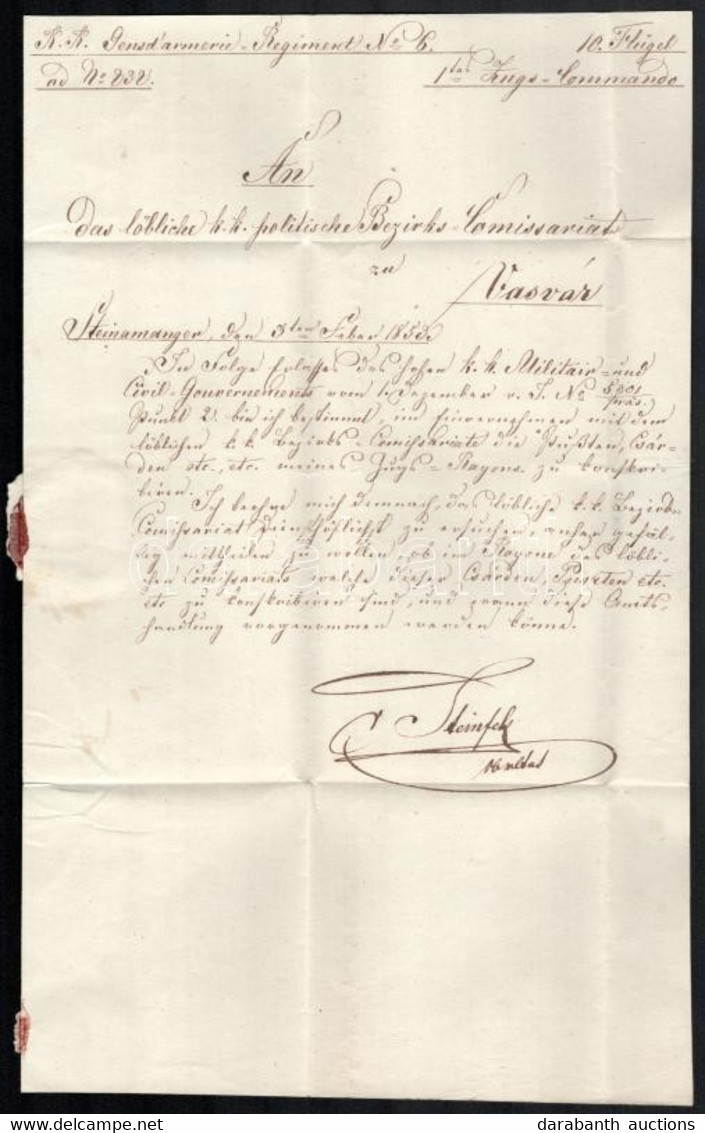 K. K. Gensd'armerie-Regiment No 6. 10. Flügel
ad No 232. 1tes Zugs-Commando
An
das löbliche k. k. politische Bezirks-Comissariat
zu
Vasvár
Steinamanger, den 3ten Feber 1853.
In Folge Erlasses des hohen k. k. Militair- und
Civil-Gouvernements vom 1. Dezember v. J. No 5801/präs.
Punkt 2. bin ich bestimmt, im Einvernehmen mit dem
löblichen k. k. Bezirks-Comissariate die Pußten, Csár-
den etc., etc. meines Zugs-Rayons zu konskri-
biren.
Ich beehre mich demnach, das löbliche k. k. Bezirks-
Comissariat diensthöflichst zu ersuchen, anher gefäl-
lig mittheilen zu wollen, ob im Rayone des löbli-
chen Comissariats welche dieser Csarden, Puszten etc.
etc zu konskribiren sind, und wann diese Amts-
handlung vorgenommen werden könne.
Steinfels
darabanth
darabanth auctions
www.delcampe.net